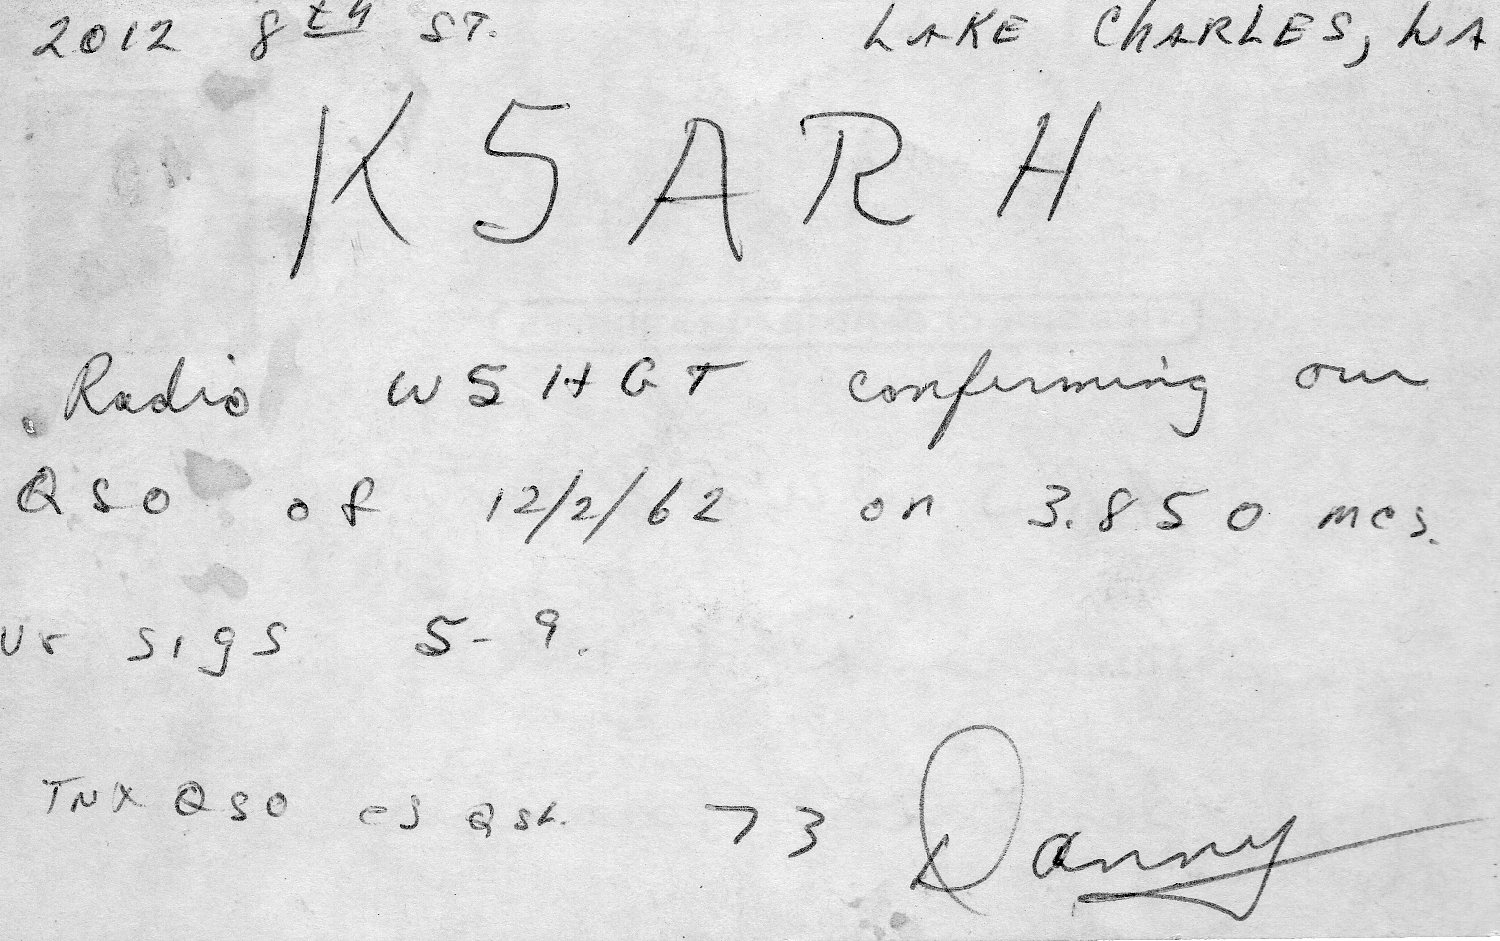 2012 8th ST. LAKE CHARLES, LA
K5ARH
Radio W5HGT confirming our
QSO of 12/2/62 on 3.850 mcs.
Ur sigs 5-9.
TNX QSO es QSL. 73 Danny